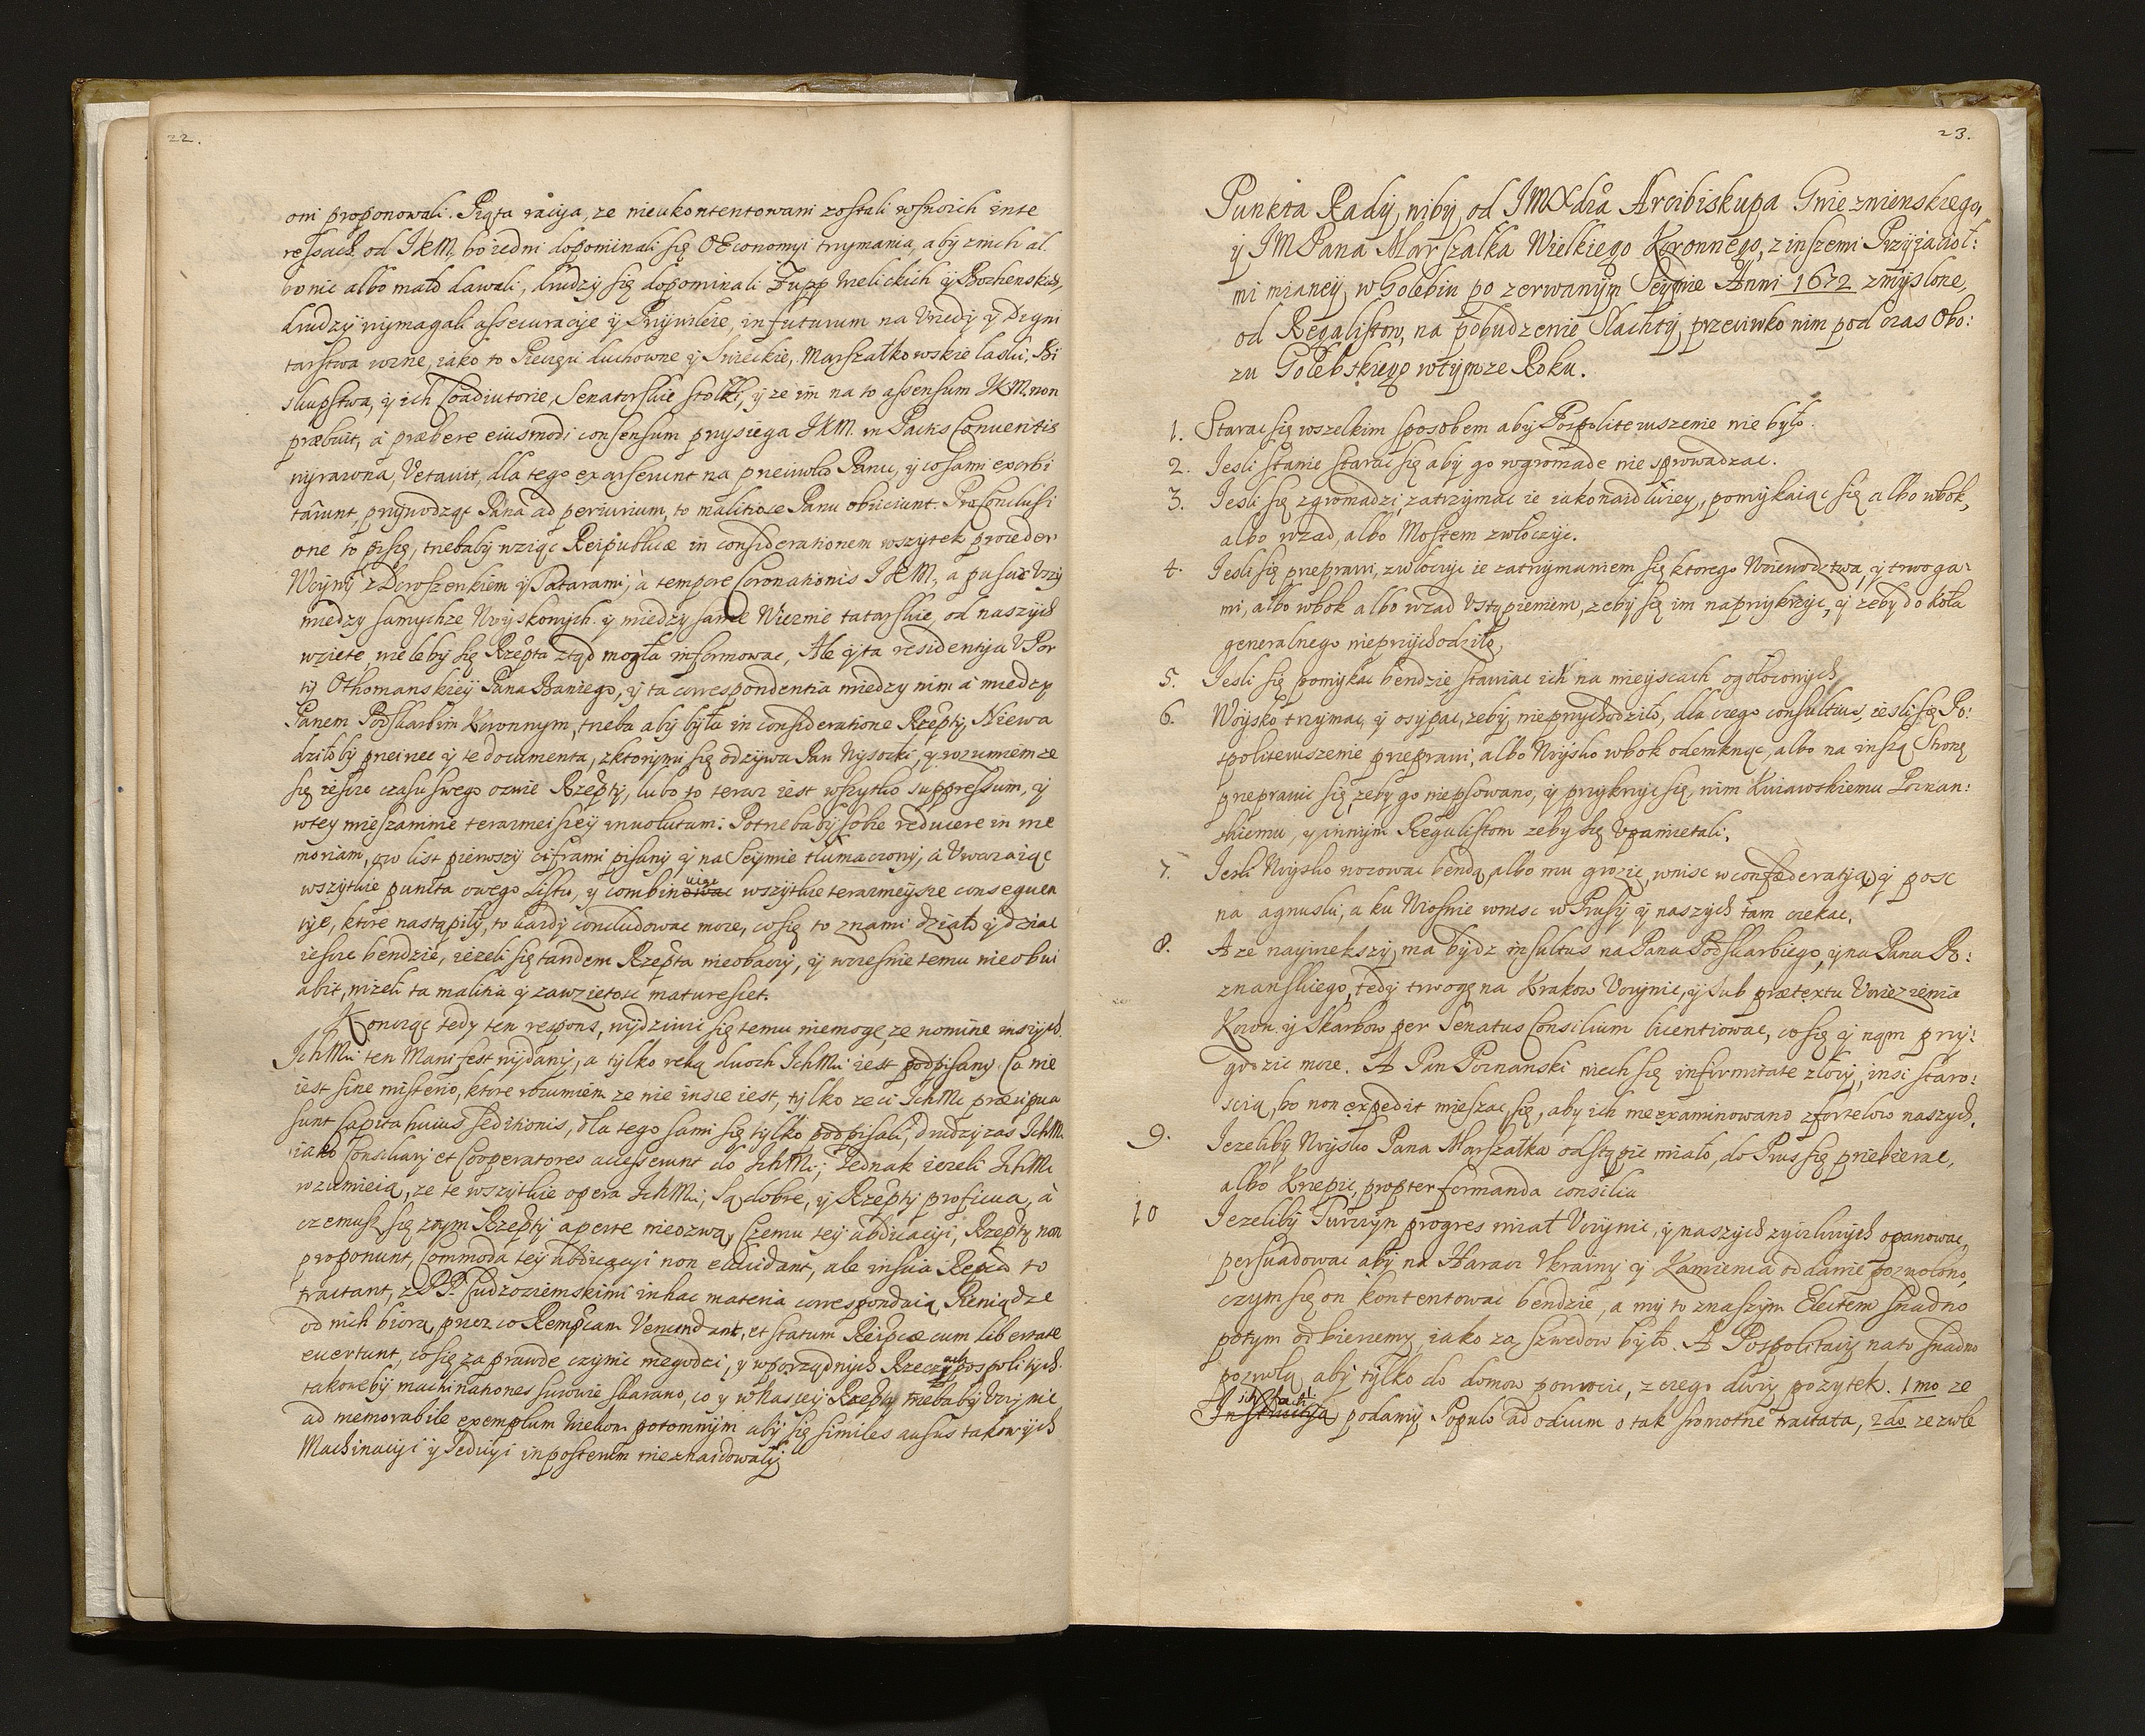 22.
oni proponowali. Piąta racija, ze nieukontentowani zostali wswoich inte
ressach od JKM, bo iedni dopominali się OEconomyi trzymania, aby znich al
bo nic albo mało dawali, drudzy się dopominali Zupp Wielickich y Bochenskich,
drudzy wymagali assecuracije y Przywileie, in futurum na Vrzedy y Digni
tarstwa rozne, iako to Pieczęci duchowne y Swieckie, Marszałkowskie laski, Bi
skupstwa, y ich Coadiutorie, Senatorskie stołki, y ze im na to assensum JKM. non
præbuit, à præbere eiusmodi consensum przysiega JKM. in Pactis Conventis
wyrazona, Vetauit, dla tego exarserunt na przeciwko Panu, y co sami exorbi
tarunt, przywodząc Pana ad periurium, to malitiose Panu obiiciunt. Pro Conclusi
one to piszę, trzebaby wziąc Reipublicæ in considerationem wszytek proceder
Woyny z Doroszenkiem y Tatarami, à tempore Coronationis JKM, a pasuiąc Vrzy
miedzy samychze Woyskowych y miedzy same Wieznie tatarskie, od naszych
wziete, wieleby się Rzepta ztąd mogła informowac, Ale y ta residentija V Por
ty Othomanskiey Pana Baniego, y ta correspondentia miedzy nim à miedzy
Panem Podskarbim Koronnym, trzeba aby była in consideratione Rzepty, Niewa
dziłoby przeirzec y te documenta, z ktorymi się odzywa Pan Wysocki, y rozumiem ze
się ieszcze czasu swego ozwie Rzepty, lubo to teraz iest wszytko suppressum, y
wtey mieszaninie terazniejszey inuolutum: Potrzebaby sobie reducere in me
moriam, ow list pierwszy ciframi pisany y na Seymie tłumaczony, à Vwazaiąc
wszytkie puncta owego Listu, y combinowac wszytkie terazneysze consequen
tyje, ktore nastąpiły, to kazdy concludowac moze, co się to znami działo y dziac
ieszcze bendzie, iezeli się tandem Rzepta nieobaczy, y wczesnie temu nie obui
abit, nizeli ta malitia y zawzietosc maturescet.
Koncząc tedy ten respons, wydziwic się temu niemogę, ze nomine inszych
JchMci ten Manifest wydany, a tylko reką dwoch JchMci iest podpisany. Co nie
iest sine misterio, ktore rozumiem ze nie insze iest, tylko ze ci JchMc præcipua
sunt capita huius seditionis, dla tego sami się tylko podpisali, drudzy zas JchM.
iako Consiliarij et Cooperatores accesserunt do JchMci; Jednak iezeli JchMc
rozumieią, ze te wszytkie opera JchMci, są dobre, y Rzepty proficua, à
czemusz się z tym Rzepty aperte nieozwą, Czemu tey abdicacyi, Rzepty non
proponunt, Commoda tey abdicacyi non elucidant, ale inscia Repca to
tractant, z PP. Cudzoziemskimi in hac materia correspondują, Pieniądze
od nich biorą, przez co Rempcam Venundant, et statum Reipcæ cum libertate
euertunt, co się za prawde czynic niegodzi, y wporządnych Rzeczach pospolitych
takoweby machinationes surowie skarano, co y w naszey Rzepty trzebaby Vczynic
ad memorabile exemplum wiekom potomnym aby się similes ausus takowych
Machinacyi y Sedicyi in posterum nieznaidowały.
23.
Punkta Rady, niby, od JMXdza Arcibiskupa Gnieznienskiego,
y JMPana Marszałka Wielkiego Koronnego, z inszemi Przyjacioł:
mi mianey, w Gołebiu po zerwanym Seymie Anni 1672 zmyslone,
od Regalistow, na pobudzenie Slachty przeciwko nim pod czas Obo:
zu Gołebskiego wtymze Roku.
1. Starac się wszelkim sposobem aby Pospolite ruszenie nie było.
2. Jesli stanie starac się aby go wgromade nie sprowadzac.
3. Jesli się zgromadzi, zatrzymac ie iako naidłuzey, pomykaiąc się albo wbok,
albo wzad, albo Mostem zwłoczyc.
4. Jesli się przeprawi, zwłoczyc ie zatrzymaniem się ktorego Woiewodztwa, y trwoga:
mi, albo wbok albo wzad Vstąpieniem, zeby się im naprzykrzyc, y zeby do koła
generalnego nieprzychodziło,
5. Jesli się pomykac bendzie, stawiac ich na mieyscach ogołoconych
6. Woysko trzymac, y osypac, zeby, nieprzychodziło, dla czego consultius, iesli się Po:
spoliteruszenie przeprawi, albo Woysko wbok odemknąc, albo na inszą Stronę
przeprawic się, zeby go niepsowano, y przykryc się, nim Kuiawskiemu Poznan:
skiemu, y innym Regalistom zeby się Vpamietali.
7. Jesli Woysko nocowac bendą, albo mu grozic, wnisc w confæderatyją, y posc
na agnuski, a ku Wiosnie wnisc w Prusy y naszych tam czekac.
8. A ze naywiekszy, ma bydz insultus na Pana Podskarbiego, y na Pana Po:
znanskiego, tedy trwogę na Krakow Vczynic, y sub prætextu Vwiezienia
Koron y Skarbow per Senatus Consilium licentiowac, co się y nam przy:
godzic moze. A Pan Poznanski niech się infirmitate złozy, insi staro:
scią, bo non expedit mieszac się, aby ich nieexaminowano zfortelow naszych.
9. Jezeliby Woysko Pana Marszałka odstąpic miało, do Prus się przebierac,
albo Krzepic, propter formanda consilia
10 Jezeliby Turczyn progres miał Vczynic, y naszych zyczliwych opanowac,
persuadowac aby na Haracz Vkrainy y Kamienca oddanie pozwolono,
czym się on kontentowac bendzie, a my to znaszym Electem snadno
potym odbierzemy, iako za Szwedow było. A Pospolitacy na to snadno
pozwolą aby tylko do domow powrocic, z czego dwoy pozytek. 1mo ze
podamy Populo ad odium o tak sromotne tractata, 2do ze zwle